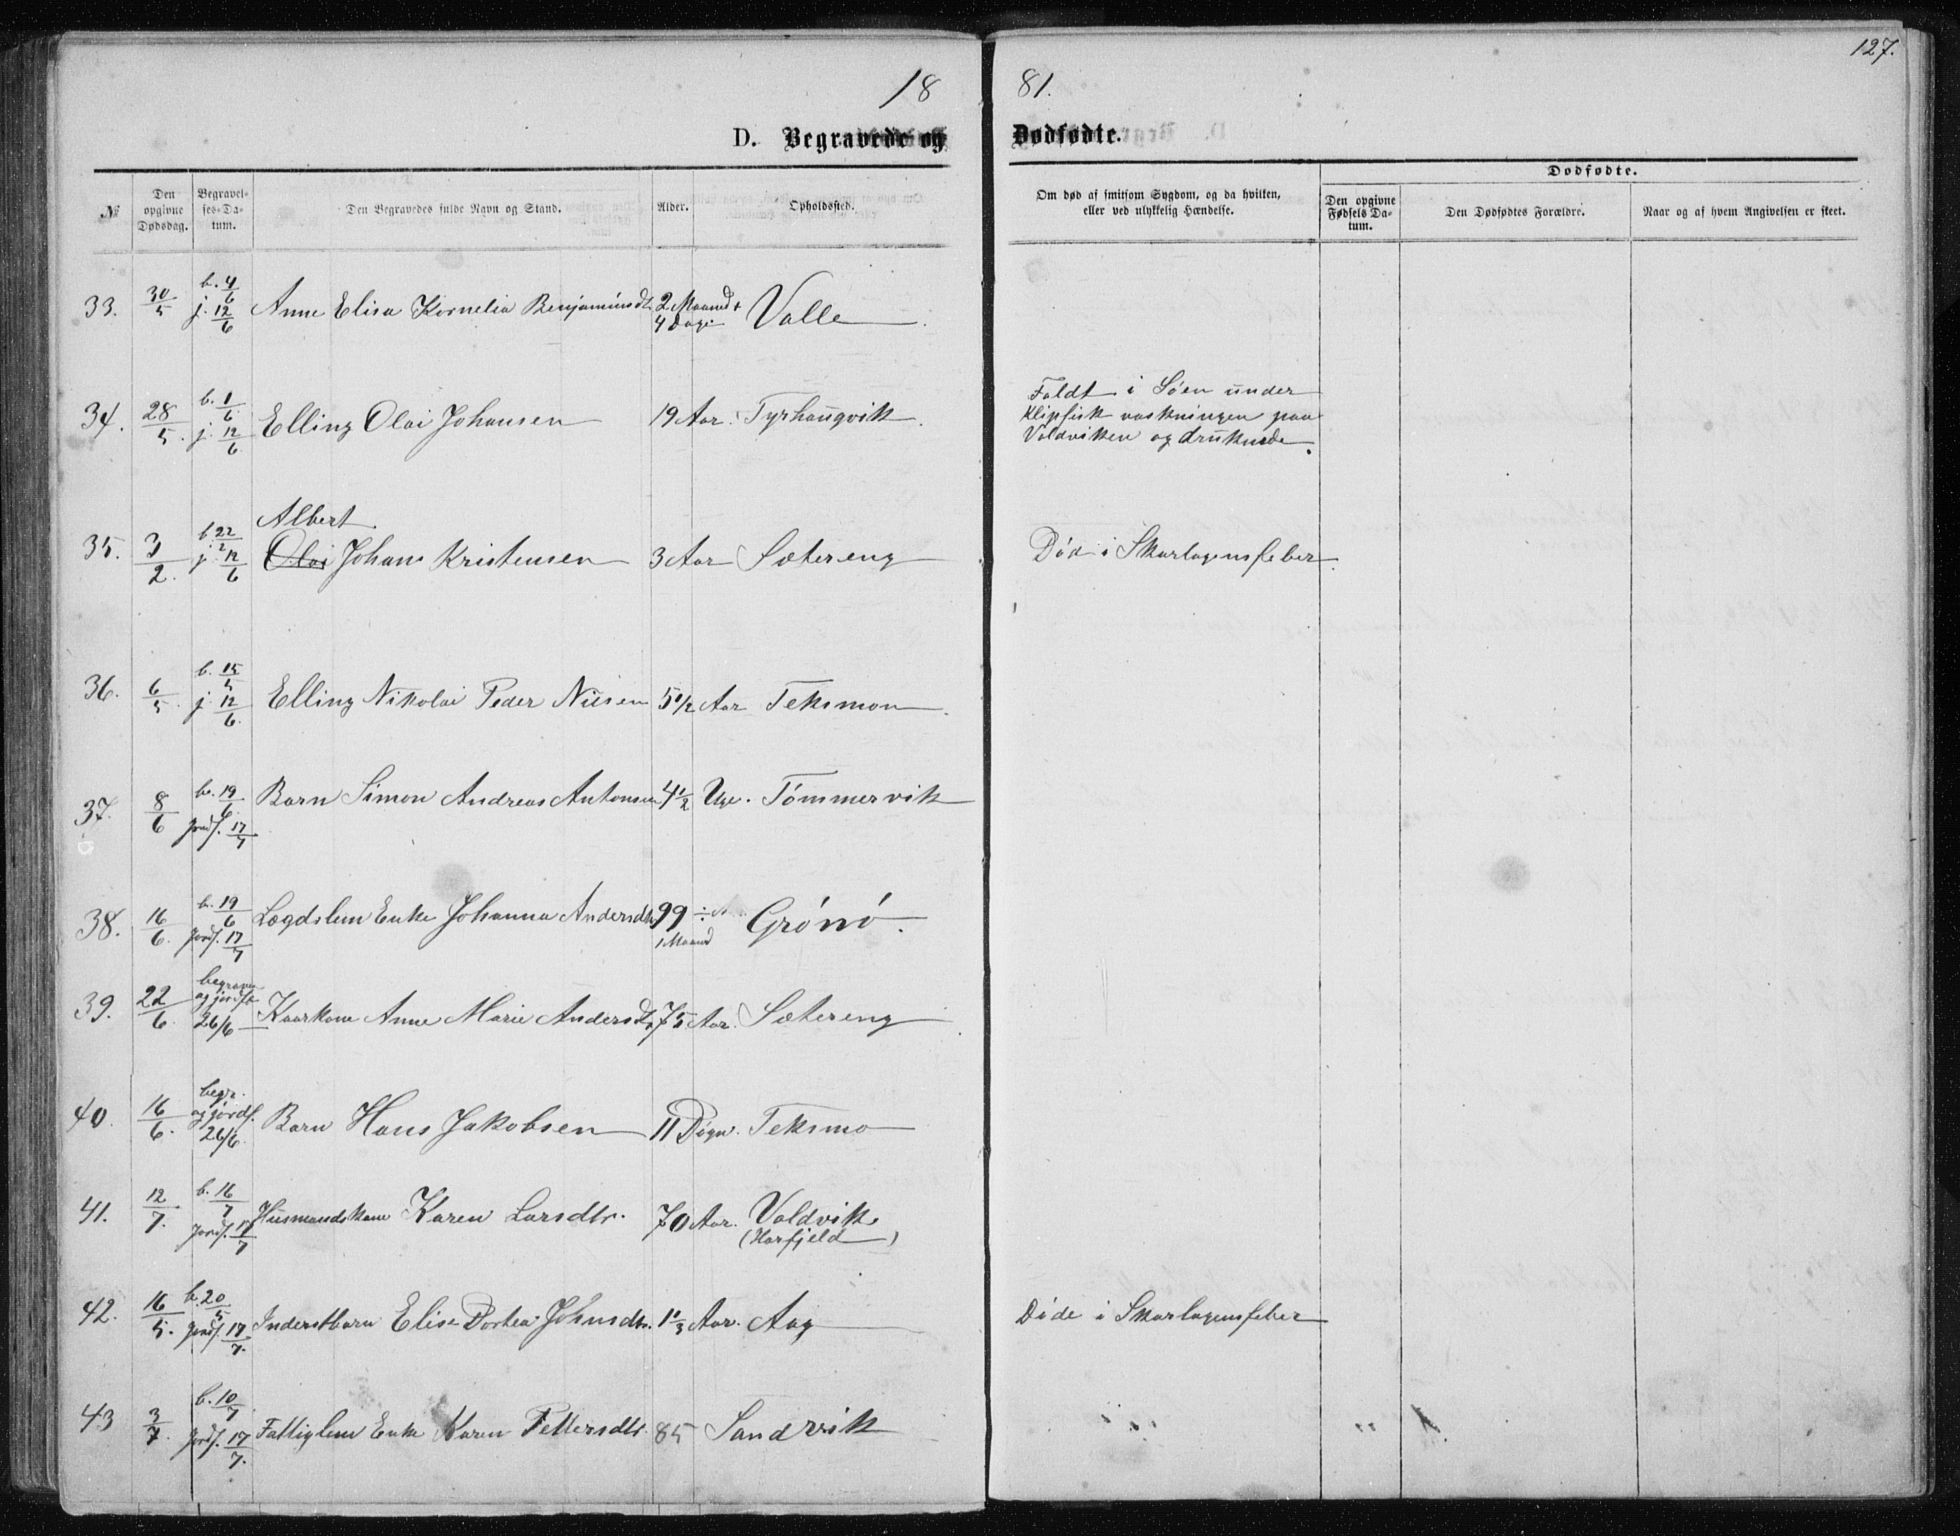 127.
18 81.
D. Begravede og Dødfødte.
№
Den opgivne Dødsdag.
Begravelses-Datum.
Den Begravedes fulde Navn og Stand.
Alder.
Opholdssted.
Om død af smitsom Sygdom, og da hvilken, eller ved ulykkelig Hændelse.
Dødfødte.
Den opgivne Fødsels Datum.
Den Dødfødtes Forældre.
Naar og af hvem Angivelsen er skeet.
33. 30/5 b. 4/6 j. 12/6 Anne Elisa Kornelia Benjaminsdt. 2 Maaned 4 Dage Valle
34. 28/5. b. 1/6 j. 12/6 Elling Olai Johansen 19 Aar. Tyrhaugvik.
Faldt i Søen under
Klipfisk vaskningen paa
Valdviken og druknede.
Albert
35. 3/2. b. 22/2 j. 12/6 Olai Johans Kristensen 3 Aar Sætereng
Død i Skarlagensfeber.
36. 6/5. b. 15/5 j. 12/6. Elling Nikolai Peder Nilsen 5 1/2 Aar Teksmon
37. 8/6 b. 19/6 jordf. 17/7 Barn Simon Andreas Antonsen 4 1/2 Uge. Tømmervik
38. 16/6. b. 19/6 jordf. 17/7 Lægdslem Enke Johanna Andersdtr 99 ÷ 1 Maaned Grønø.
39. 22/6. begravn og jordf. 26/6 Kaarkone Anne Marie Andersdtr 75 Aar. Sætereng
40. 16/6. begr. og jordf. 26/6. Barn Hans Jakobsen 11 Døgn. Teksmo
41. 12/7. b. 16/7 jordf. 17/7 Husmandskone Karen Larsdtr. 70 Aar. Valdvik
(Harfjeld)
42. 16/5. b. 20/5 jordf. 17/7. Inderstbarn Elise Dortea Johnsdtr. 1 1/3 Aar. Aag
Døde i Skarlagensfeber
43 3/7. b. 10/7. jordf. 17/7. Fattiglem Enke Karen Pettersdtr. 85 Sandvik